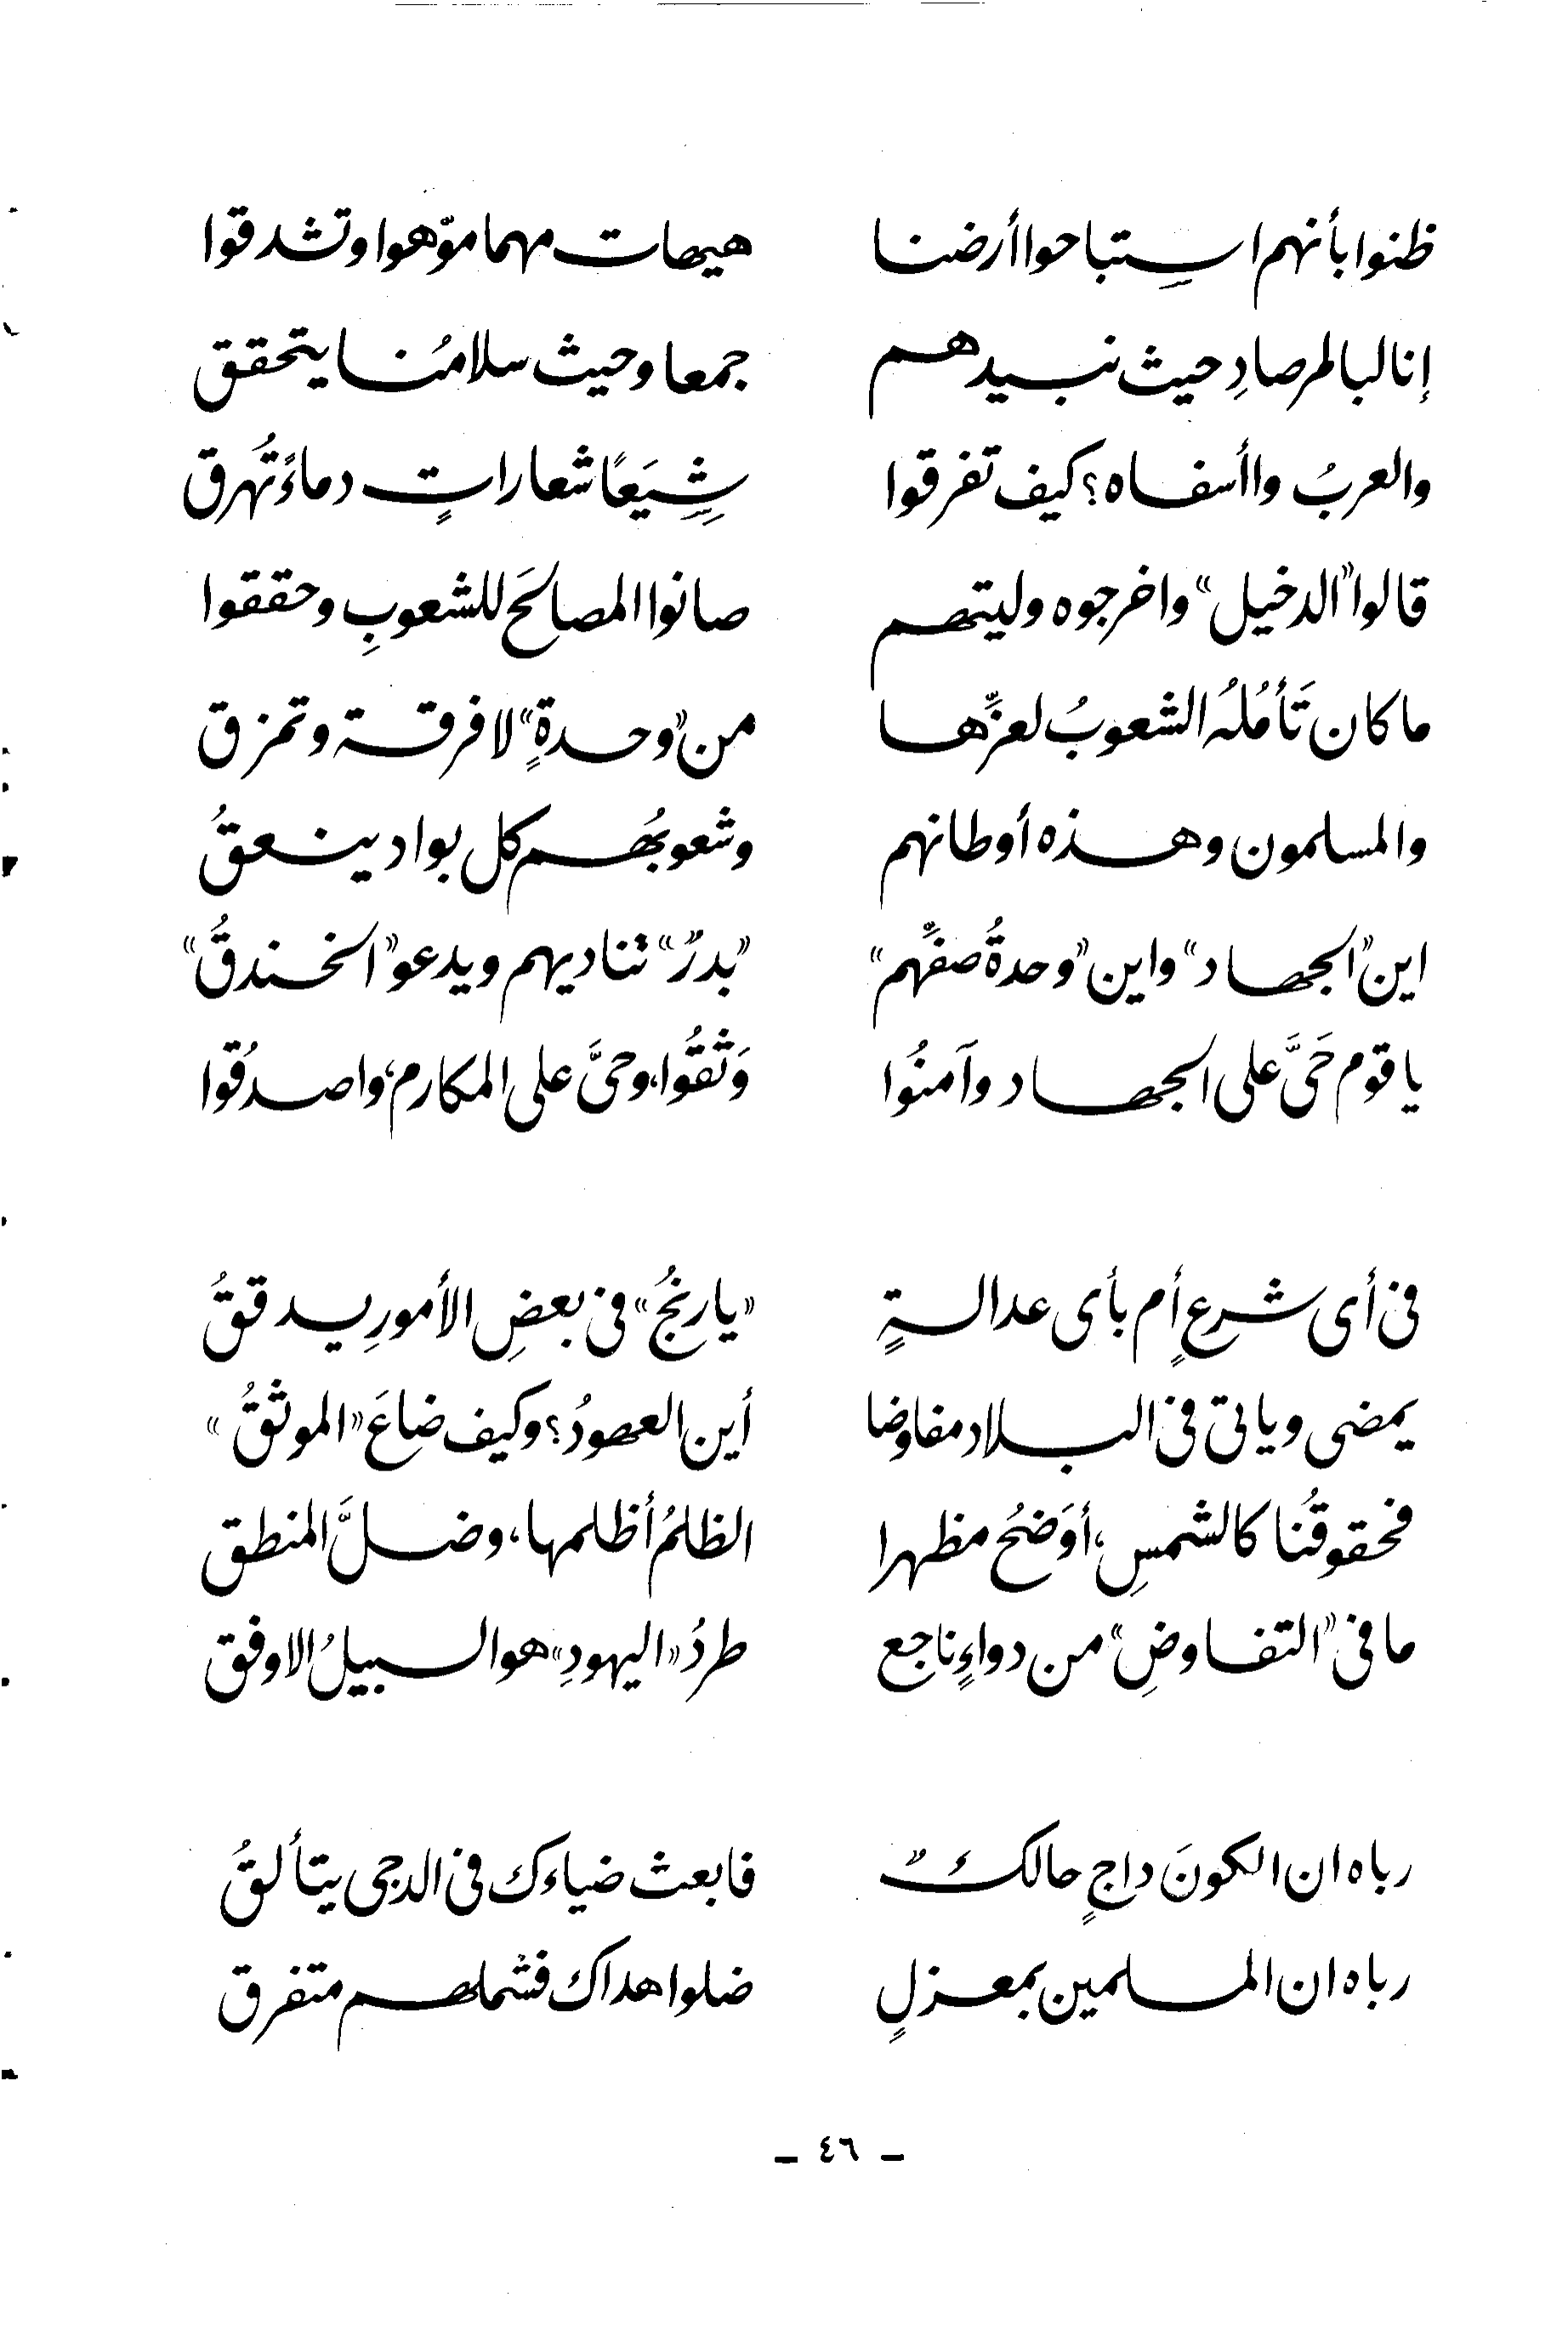 ظنوا بأنهم استباحوا أرضنا هيهات مهما موّهوا وتشدقوا
إنا لبالمرصادِ حيث نبيدهم جمعا وحيث سلامُنا يتحقق
والعربُ واأسفاه؟ كيف تفرقوا شِيَعًا شعاراتٍ دماءً تُهرق
قالوا "الدخيل" واخرجوه وليتهم صانوا المصالحَ للشعوبِ وحققوا
ما كان تَأمُلُه الشعوبُ لعزِّها من "وحدةٍ" لا فرقة وتمزق
والمسلمون وهذه أوطانهم وشعوبُهم كل بواد ينعقُ
اين "الجهاد" واين "وحدةُ صفِّهم" "بدرٌ" تناديهم ويدعو "الخندقُ"
يا قوم حَىَّ على الجهاد وآمنُوا وَثقُوا، وحىَّ على المكارم، واصدُقوا
فى أى شرعٍ أم بأى عدالةٍ «يارنجُ» فى بعضِ الأمورِ يدققُ
يمضى وياتى فى البلاد مفاوضا أين العهودُ؟ وكيف ضاعَ «الموثقُ»
فحقوقُنا كالشمسِ، أوَضحُ مظهرا الظلمُ أظلمها، وضلَّ المنطق
ما فى "التفاوضِ" من دواءٍ ناجع طردُ «اليهودِ» هو السبيلُ الاوفق
رباه ان الكونَ داجٍ حالكٌ فابعث ضياءك فى الدجى يتألقُ
رباه ان المسلمين بمعزلٍ ضلوا هداك فشملهم متفرق
– ٤٦ –